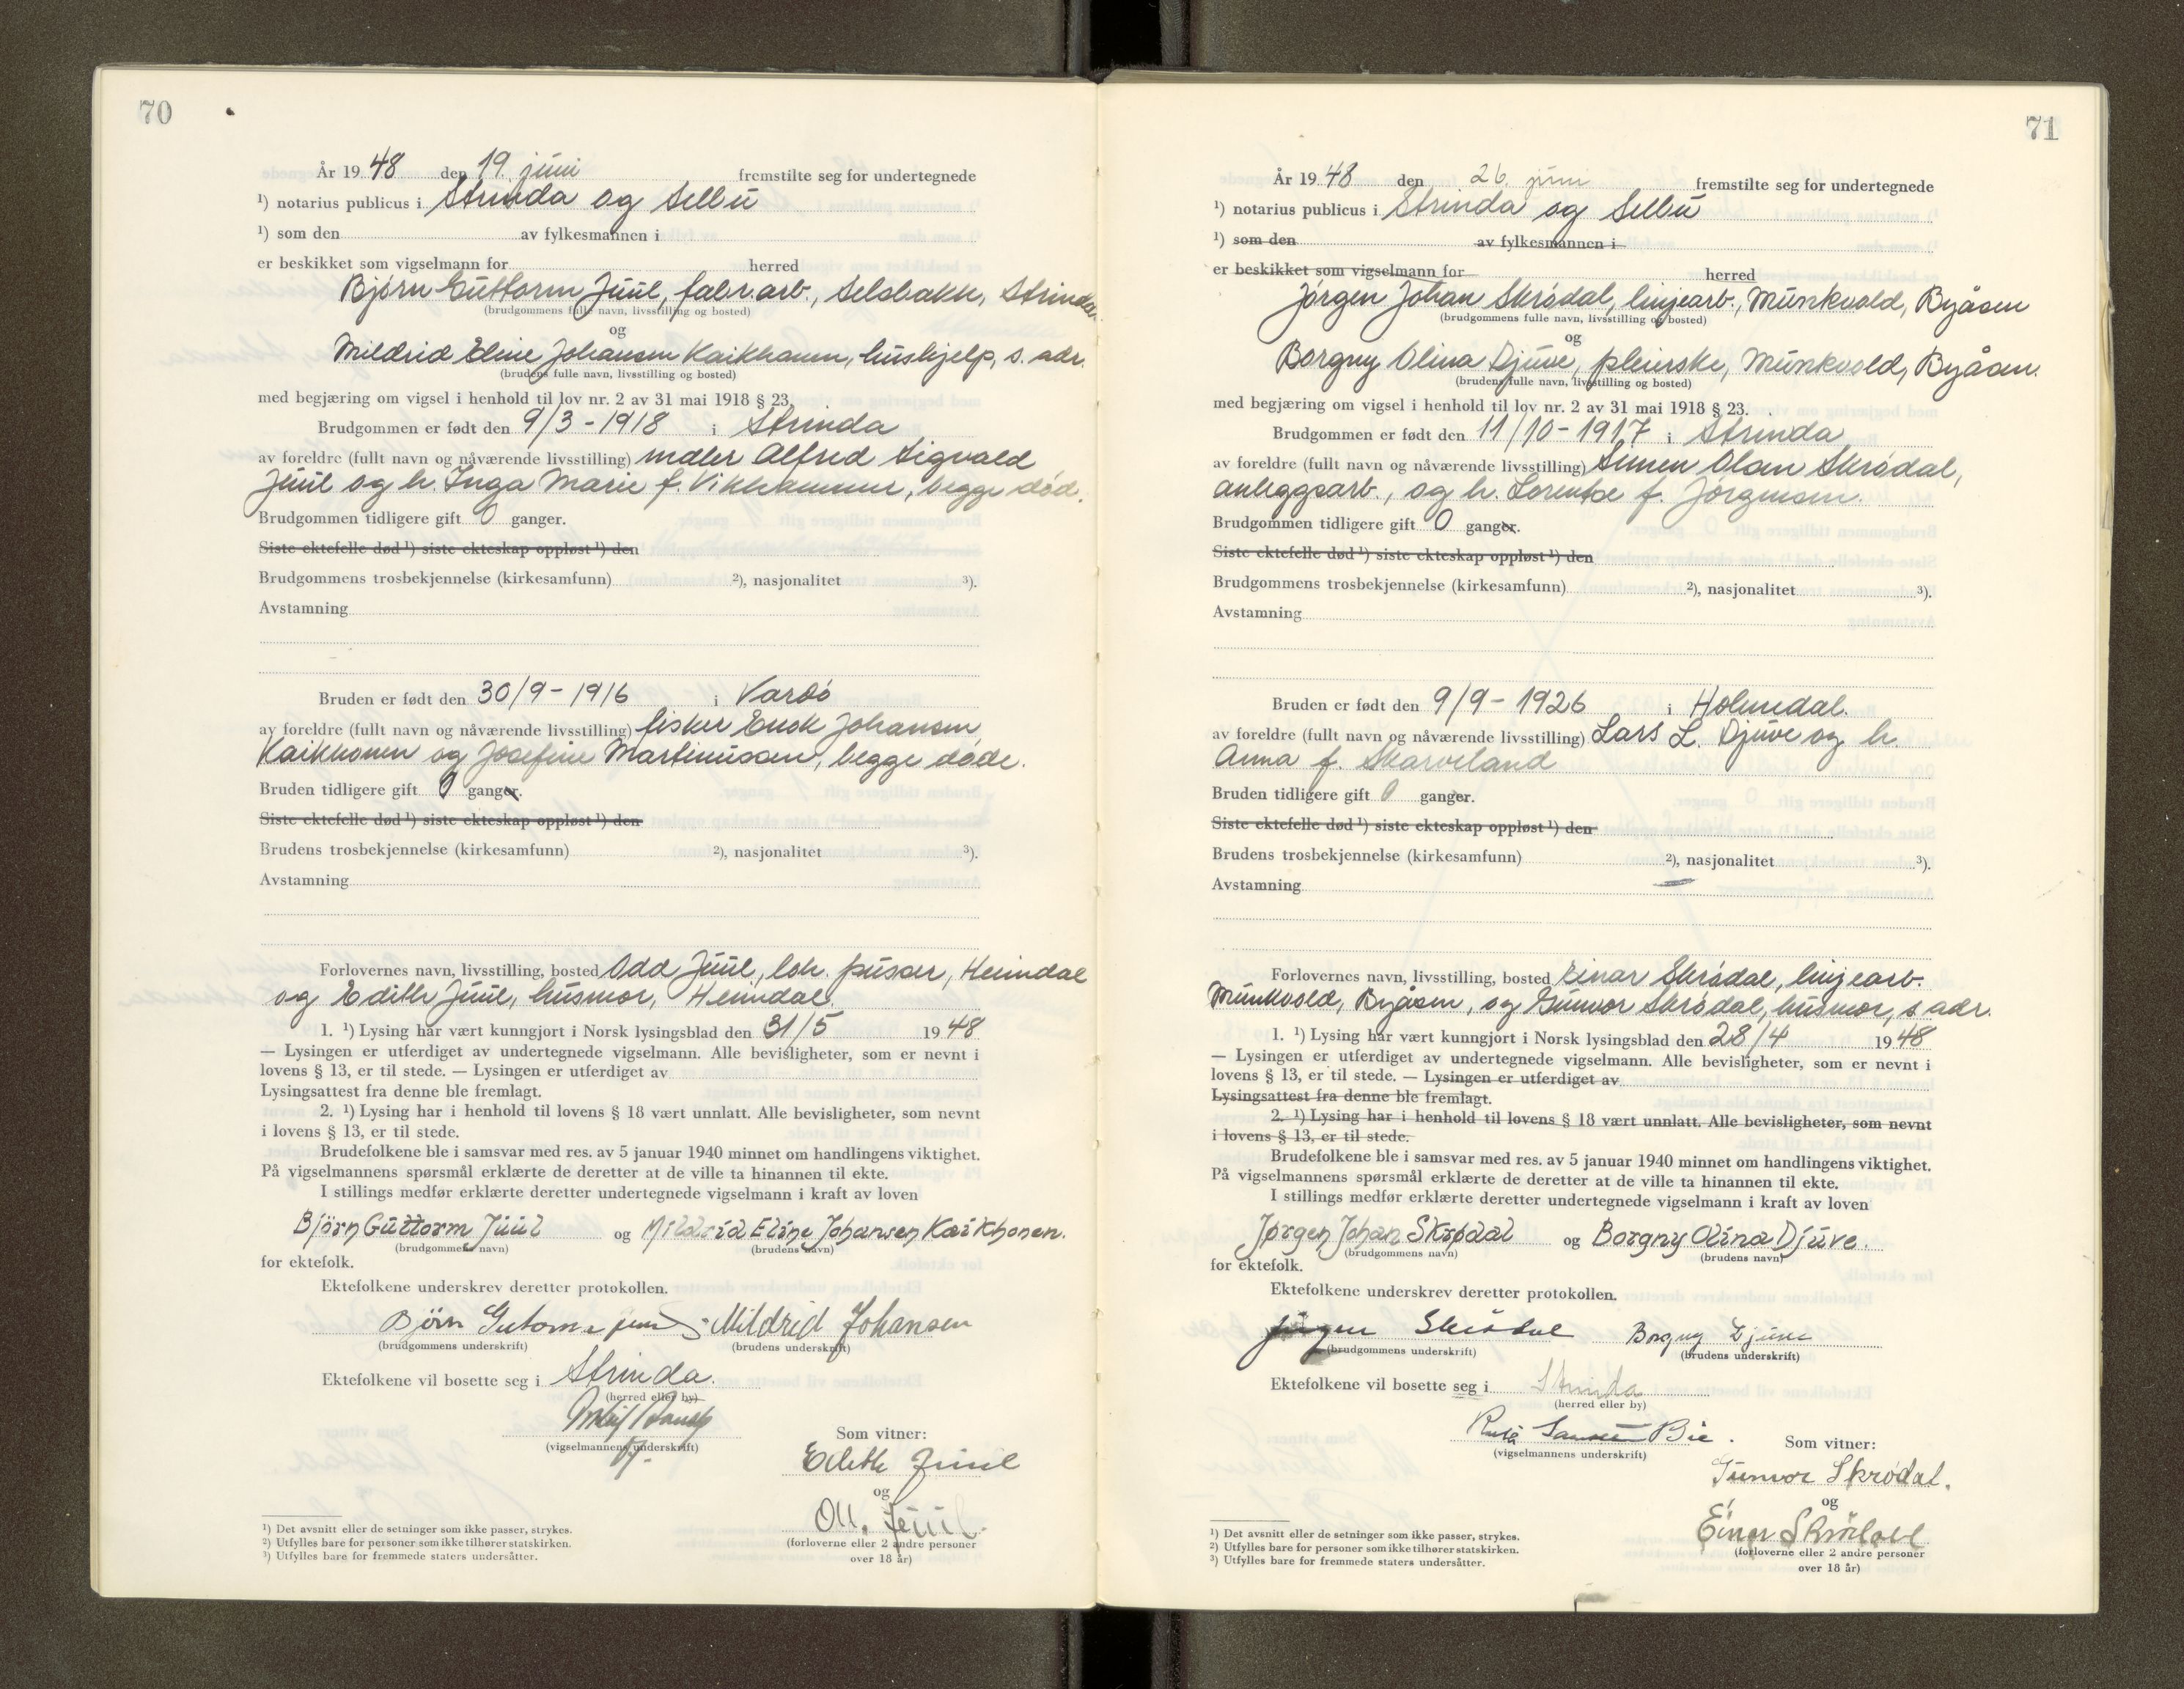 70
År 1948 den 19. juni fremstilte seg for undertegnede
¹) notarius publicus i Strinda og Selbu
¹) som den av fylkesmannen i
er beskikket som vigselmann for herred
Bjørn Guttorm Juul, fabr.arb., Selsbakk, Strinda
(brudgommens fulle navn, livsstilling og bosted)
og
Mildrid Eline Johansen Kaikkonen, hushjelp, s. adr.
(brudens fulle navn, livsstilling og bosted)
med begjæring om vigsel i henhold til lov nr. 2 av 31 mai 1918 § 23.
Brudgommen er født den 9/3 - 1918 i Strinda
av foreldre (fullt navn og nåværende livsstilling) maler Alfred Sigvald
Juul og h. Inga Marie f. Vikhammer, begge død.
Brudgommen tidligere gift 0 ganger.
Siste ektefelle død ¹) siste ekteskap oppløst ¹) den
Brudgommens trosbekjennelse (kirkesamfunn) ²), nasjonalitet ³).
Avstamning
Bruden er født den 30/9 - 1916 i Vardö
av foreldre (fullt navn og nåværende livsstilling) fisker Enok Johansen
Kaikkonen og Josefine Martinussen, begge døde.
Bruden tidligere gift 0 ganger.
Siste ektefelle død ¹) siste ekteskap oppløst ¹) den
Brudens trosbekjennelse (kirkesamfunn) ²), nasjonalitet ³).
Avstamning
Forlovernes navn, livsstilling, bosted Odd Juul, lok. pusser, Heimdal
og Edith Juul, husmor, Heimdal.
1. ¹) Lysing har vært kunngjort i Norsk lysingsblad den 31/5 1948
— Lysingen er utferdiget av undertegnede vigselmann. Alle bevisligheter, som er nevnt i
lovens § 13, er til stede. — Lysingen er utferdiget av
Lysingsattest fra denne ble fremlagt.
2. ¹) Lysing har i henhold til lovens § 18 vært unnlatt. Alle bevisligheter, som nevnt
i lovens § 13, er til stede.
Brudefolkene ble i samsvar med res. av 5 januar 1940 minnet om handlingens viktighet.
På vigselmannens spørsmål erklærte de deretter at de ville ta hinannen til ekte.
I stillings medfør erklærte deretter undertegnede vigselmann i kraft av loven
Björn Guttorm Juul og Mildrid Eline Johansen Kaikkonen.
(brudgommens navn) (brudens navn)
for ektefolk.
Ektefolkene underskrev deretter protokollen.
Björn Gutorm Juul Mildrid Johansen
(brudgommens underskrift) (brudens underskrift)
Ektefolkene vil bosette seg i Strinda.
(herred eller by)
(vigselmannens underskrift)
Som vitner:
Edith Juul
og
Juul
(forloverne eller 2 andre personer
over 18 år)
¹) Det avsnitt eller de setninger som ikke passer, strykes.
²) Utfylles bare for personer som ikke tilhører statskirken.
³) Utfylles bare for fremmede staters undersåtter.
71
År 1948 den 26. juni fremstilte seg for undertegnede
¹) notarius publicus i Strinda og Selbu
¹) som den av fylkesmannen i
er beskikket som vigselmann for herred
Jørgen Johan Skrødal, linjearb., Munkvold, Byåsen
(brudgommens fulle navn, livsstilling og bosted)
og
Borgny Olina Djuve, pleierske, Munkvold, Byåsen.
(brudens fulle navn, livsstilling og bosted)
med begjæring om vigsel i henhold til lov nr. 2 av 31 mai 1918 § 23.
Brudgommen er født den 11/10 - 1917 i Strinda
av foreldre (fullt navn og nåværende livsstilling) Simen Olan Skrødal,
anleggsarb., og h. Lorentze f. Jørgensen.
Brudgommen tidligere gift 0 ganger.
Siste ektefelle død ¹) siste ekteskap oppløst ¹) den
Brudgommens trosbekjennelse (kirkesamfunn) ²), nasjonalitet ³).
Avstamning
Bruden er født den 9/9 - 1926 i Holmedal.
av foreldre (fullt navn og nåværende livsstilling) Lars L. Djuve og h.
Anna f. Skarveland
Bruden tidligere gift 0 ganger.
Siste ektefelle død ¹) siste ekteskap oppløst ¹) den
Brudens trosbekjennelse (kirkesamfunn) ²), nasjonalitet ³).
Avstamning
Forlovernes navn, livsstilling, bosted Einar Skrødal, linjearb.
Munkvold, Byåsen, og Gunvor Skrødal, husmor, s. adr.
1. ¹) Lysing har vært kunngjort i Norsk lysingsblad den 28/4 1948
— Lysingen er utferdiget av undertegnede vigselmann. Alle bevisligheter, som er nevnt i
lovens § 13, er til stede. — Lysingen er utferdiget av
Lysingsattest fra denne ble fremlagt.
2. ¹) Lysing har i henhold til lovens § 18 vært unnlatt. Alle bevisligheter, som nevnt
i lovens § 13, er til stede.
Brudefolkene ble i samsvar med res. av 5 januar 1940 minnet om handlingens viktighet.
På vigselmannens spørsmål erklærte de deretter at de ville ta hinannen til ekte.
I stillings medfør erklærte deretter undertegnede vigselmann i kraft av loven
Jørgen Johan Skrødal og Borgny Olina Djuve.
(brudgommens navn) (brudens navn)
for ektefolk.
Ektefolkene underskrev deretter protokollen.
Jørgen Skrødal Borgny Djuve
(brudgommens underskrift) (brudens underskrift)
Ektefolkene vil bosette seg i Strinda
(herred eller by)
Bie.
(vigselmannens underskrift)
Som vitner:
Gunvor Skrødal.
og
Einar Skrödal
(forloverne eller 2 andre personer
over 18 år)
¹) Det avsnitt eller de setninger som ikke passer, strykes.
²) Utfylles bare for personer som ikke tilhører statskirken.
³) Utfylles bare for fremmede staters undersåtter.